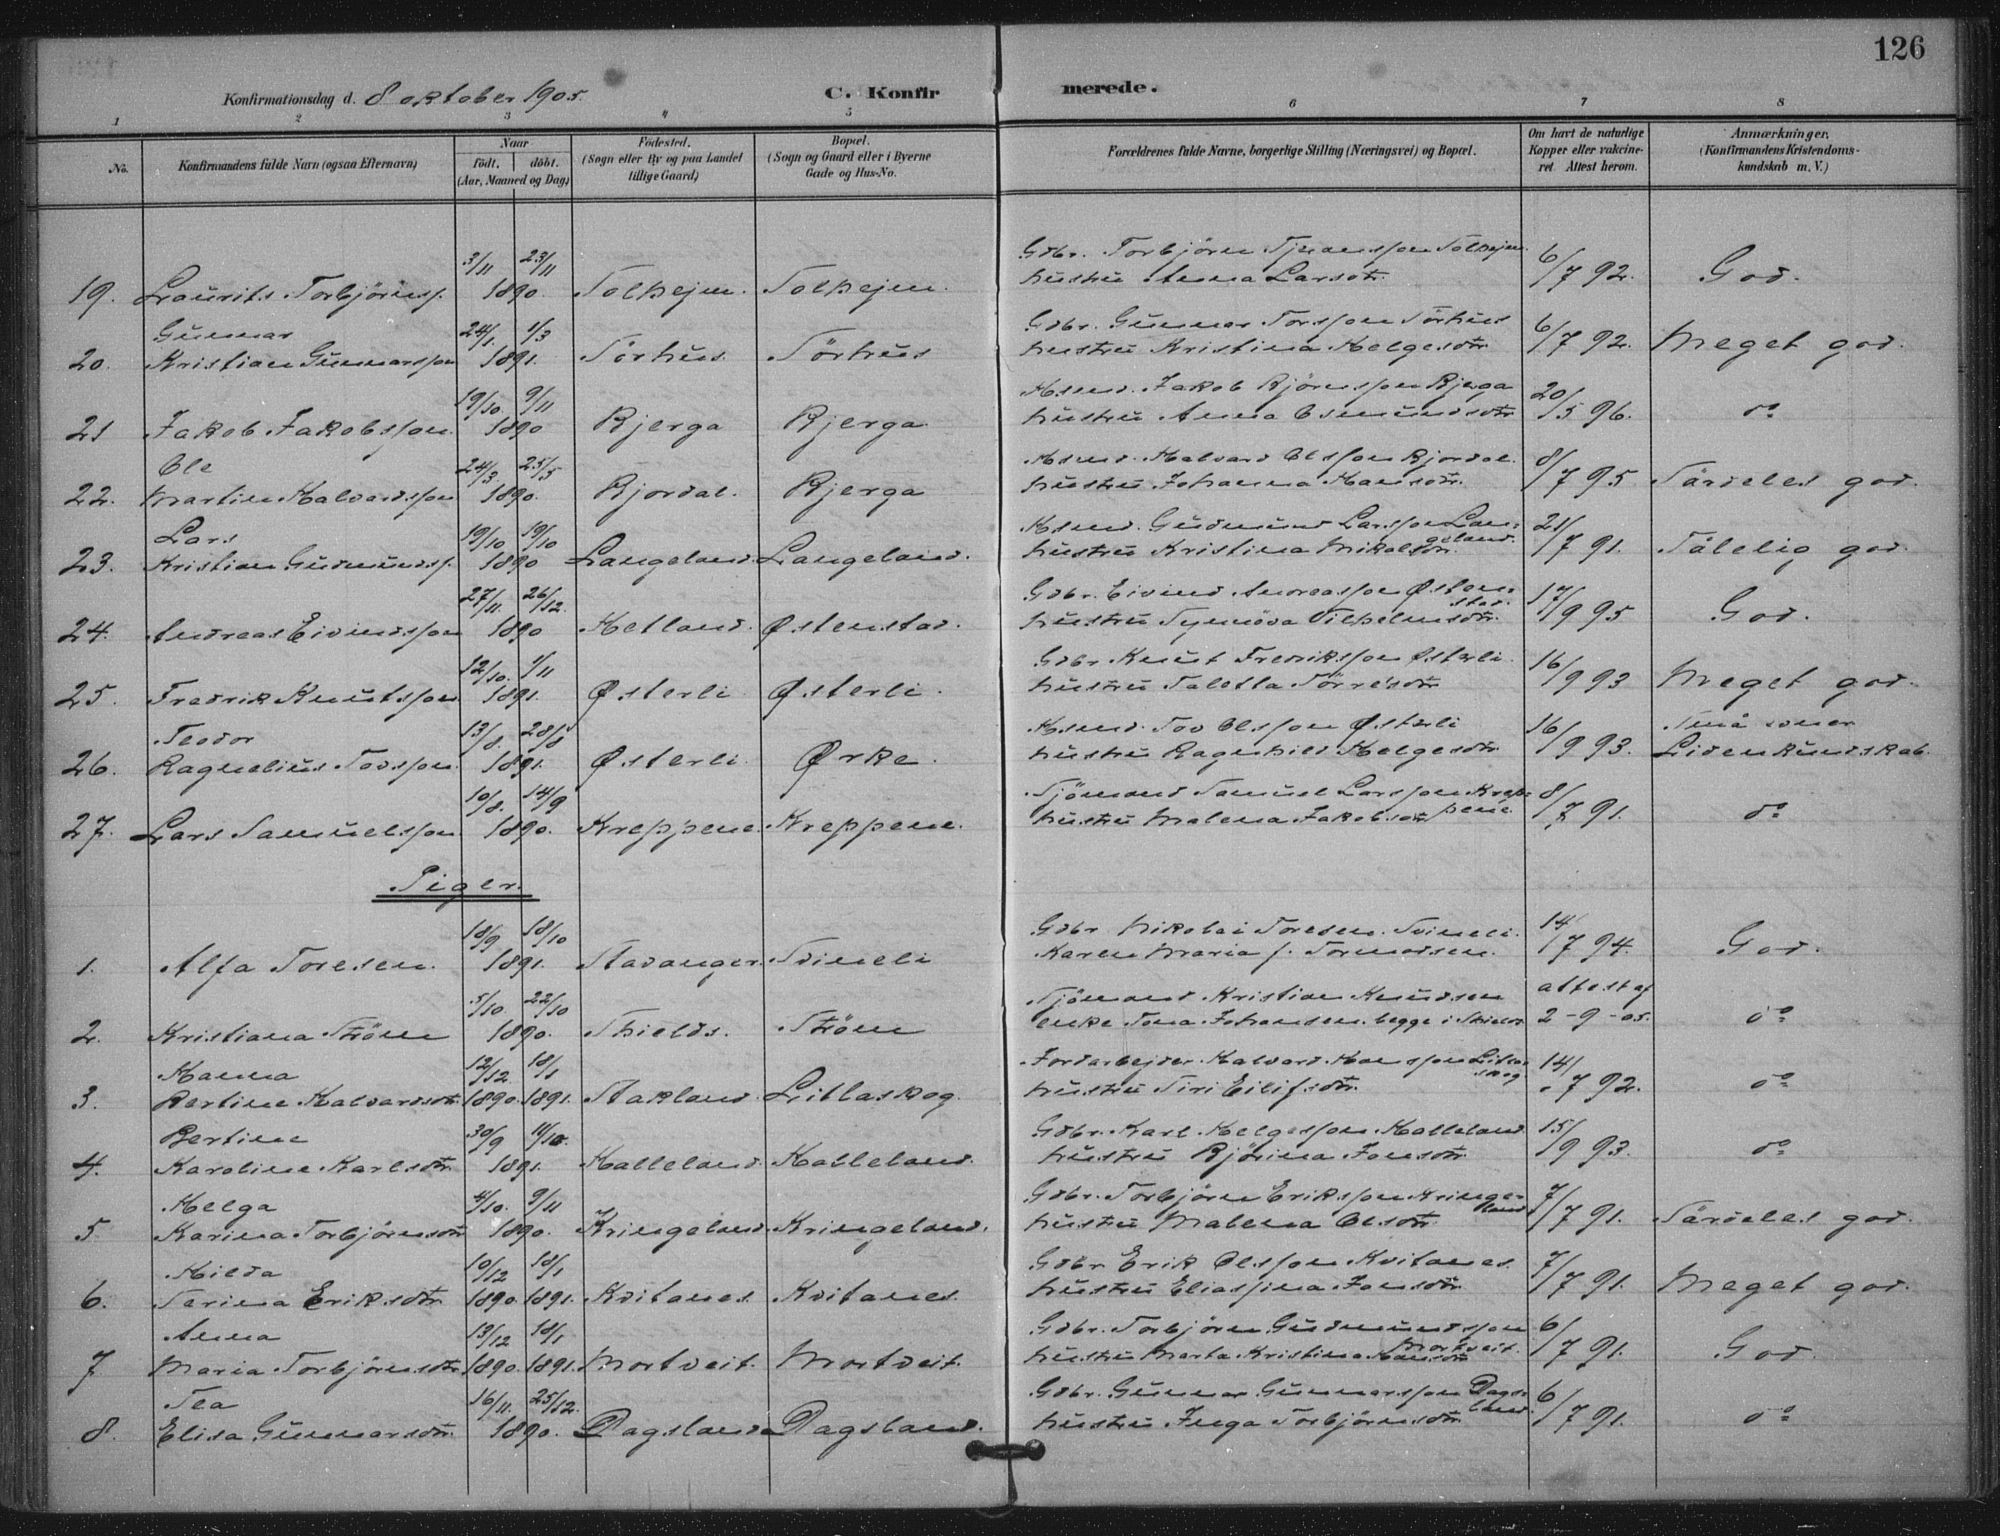 126
Konfirmationsdag d. 8 oktober 1905. C. Konfir merede.
1 2 3 4 5 6 7 8
No. Konfirmandens fulde Navn (ogsaa Efternavn) Naar født, døbt. (Aar, Maaned og Dag) Fødested. (Sogn eller By og paa Landet tillige Gaard) Bopæl. (Sogn og Gaard eller i Byerne Gade og Hus-No. Forældrenes fulde Navne, borgerlige Stilling (Næringsvei) og Bopæl. Om havt de naturlige Kopper eller vakcineret. Attest herom. Anmærkninger. (Konfirmandens Kristendomskundskab m. V.)
3/11 23/11 Gdbr. Torbjörn Solheim 6/7 92. God.
19. Laurits Torbjörns. 1890. Solheim. Solheim. hustru Anna Larsdtr.
Gunnar 24/1. 1/3 Gdbr. Gunnar Torsson Törhus 6/7 92. Meget god.
20. Kristian Gunnarsson 1891. Törhus. Törhus hustru Kristina Helgesdtr
19/10. 9/11 Hsmd. Jakob Bjerga 20/5 96. do
21 Jakob Jakobsson. 1890 Bjerga Bjerga hustru Anna Osmundsdtr
Ole 24/3 25/5 Hsmd. Halvard Olsson Bjordal. 8/7 95 Særdeles god.
22. Martin Halvardsson 1890. Bjordal. Bjerga hustru Johanna Hansdtr.
Lars 19/10 19/10 Hsmd. Gudmund Larsson Langeland. 21/7 91. Tålelig god.
23. Kristian Gudmunds. 1890 Langeland. Langeland. hustru Kristina Mikalsdtr.
27/11. 26/12. Gdbr. Eivind Andreasson Østenstad. 17/9 95 God.
24. Andreas Eivindsson 1890 Hetland. Østenstad. hustru Synnöva Vilhelmsdtr.
12/10. 1/11 Gdbr. Knut Fredriksson Østerli. 16/9 93 Meget god.
25. Fredrik Knutsson 1891. Østerli Østerli. hustru Saletta Törresdtr
Teodor 13/8. 28/8 Hsmd. Tov Olsson Østerli 16/9 93. Små evner
26. Ragnelius Tovsson. 1891. Østerli. Ørke. hustru Ragnhild Helgesdtr. Liden kundskab.
10/8. 14/9 Sjömand Samuel Larsson Kreppene 8/7 91. do
27. Lars Samuelsson 1890. Kreppene. Kreppene. hustru Malena Jakobsdtr
Piger.
18/9 18/10 Gdbr. Nikolai Toresen. Svineli. 14/7 94. God.
1. Alfa Toresen. 1891. Stavanger. Svineli Karen Maria f. Tormodsen.
5/10 22/10 Sjömand Kristian Knudsen attest af
2. Kristiana Ström 1890. Shields. Ström enke Tona Johansen. begge i Shields 2-9-05. do
Hanna 12/12 18/1 Jordarbejder. Halvard Hansson Litlaskog 14/7 92. do
3. Bertine Halvardsdtr. 1890. 1891. Stakland. Litlaskog. hustru Siri Eilifsdtr.
Bertine 30/9 11/10. Gdbr. Karl Helgesson Halleland 15/9 93. do
4. Karoline Karlsdtr. 1891. Halleland. Halleland. hustru Björina Jonsdtr.
Helga 4/10. 9/11 Gdbr. Torbjörn Eriksson Kringeland 7/7 91. Særdeles god.
5. Karina Torbjörnsdtr 1890. Kringeland. Kringeland. hustru Malena Olsdtr.
Hilda 10/12 18/1 Gdbr. Erik Olsson Kvitanes 7/7 91. Meget god.
6. Serina Eriksdtr 1890. 1891. Kvitanes. Kvitanes. hustru Eliassina Jonsdtr.
Anna 13/12 18/1 Gdbr. Torbjörn Gudmundsson Mortveit. 6/7 91. God.
7 Maria Torbjörnsdtr. 1890. 1891. Mortveit. Mortveit. hustru Marta Kristina Hansdtr
Tea 16/11. 25/12. Gdbr. Gunnar Gunnarsson Dagsland. 6/7 91. do
8. Elisa Gunnarsdtr. 1890. Dagsland Dagsland. hustru Inga Torbjörnsdtr.